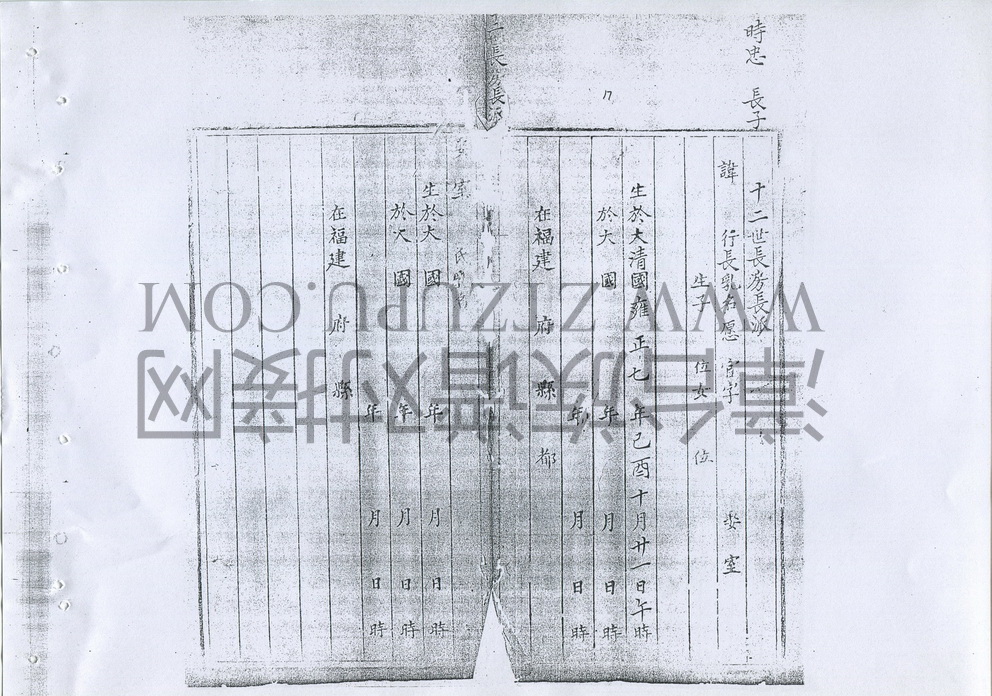 時忠 長子
十二世長房長派
諱 行長乳名愿 官字 娶室
生子 位女 位
生於大清國雍正七年己酉十月廿一日午時
於大 國 年 月 日 時
年 月 日 時
在福建 府 縣 都
長房長派
室 氏
生於大 國 年 月 日 時
於大 國 年 月 日 時
年 月 日 時
在福建 府 縣
WWW.ZTZUPU.COM
漳台族谱对接网